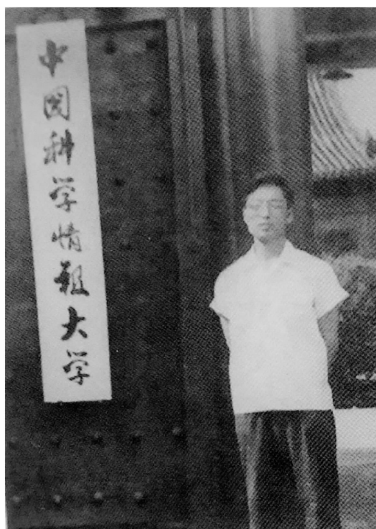 中国科学情报大学